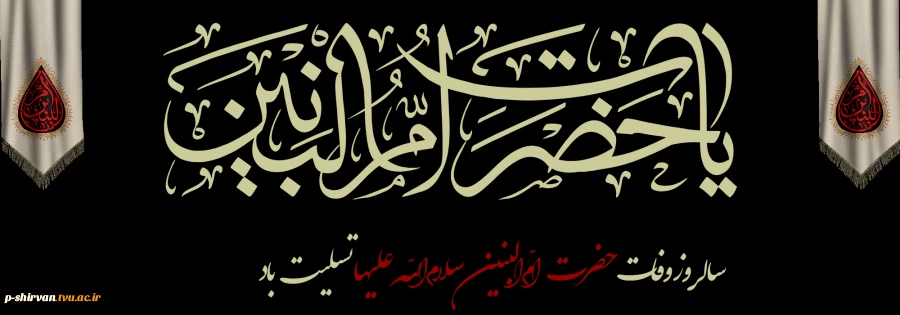 یا حضرت ام البنین
سالروز وفات حضرت ام البنین سلام الله علیها تسلیت باد
p-shirvan.tvu.ac.ir